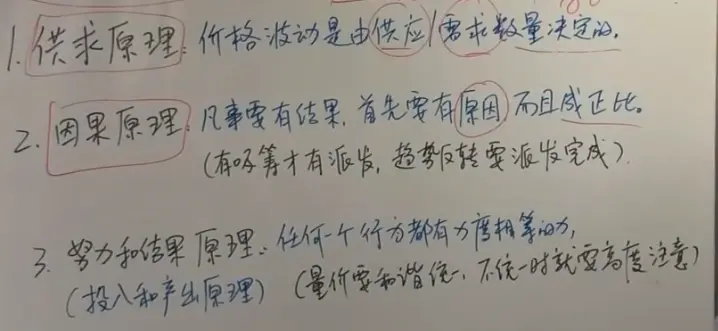 1. 供求原理: 价格波动是由供应/需求数量决定的。
2. 因果原理: 凡事要有结果, 首先要有原因 而且成正比。
(有吸筹才有派发, 趋势反转要派发完成).
3. 努力和结果 原理: 任何一个行为都有力度相等的力,
(投入和产出原理) (量价要和谐统一, 不统一时就要高度注意)